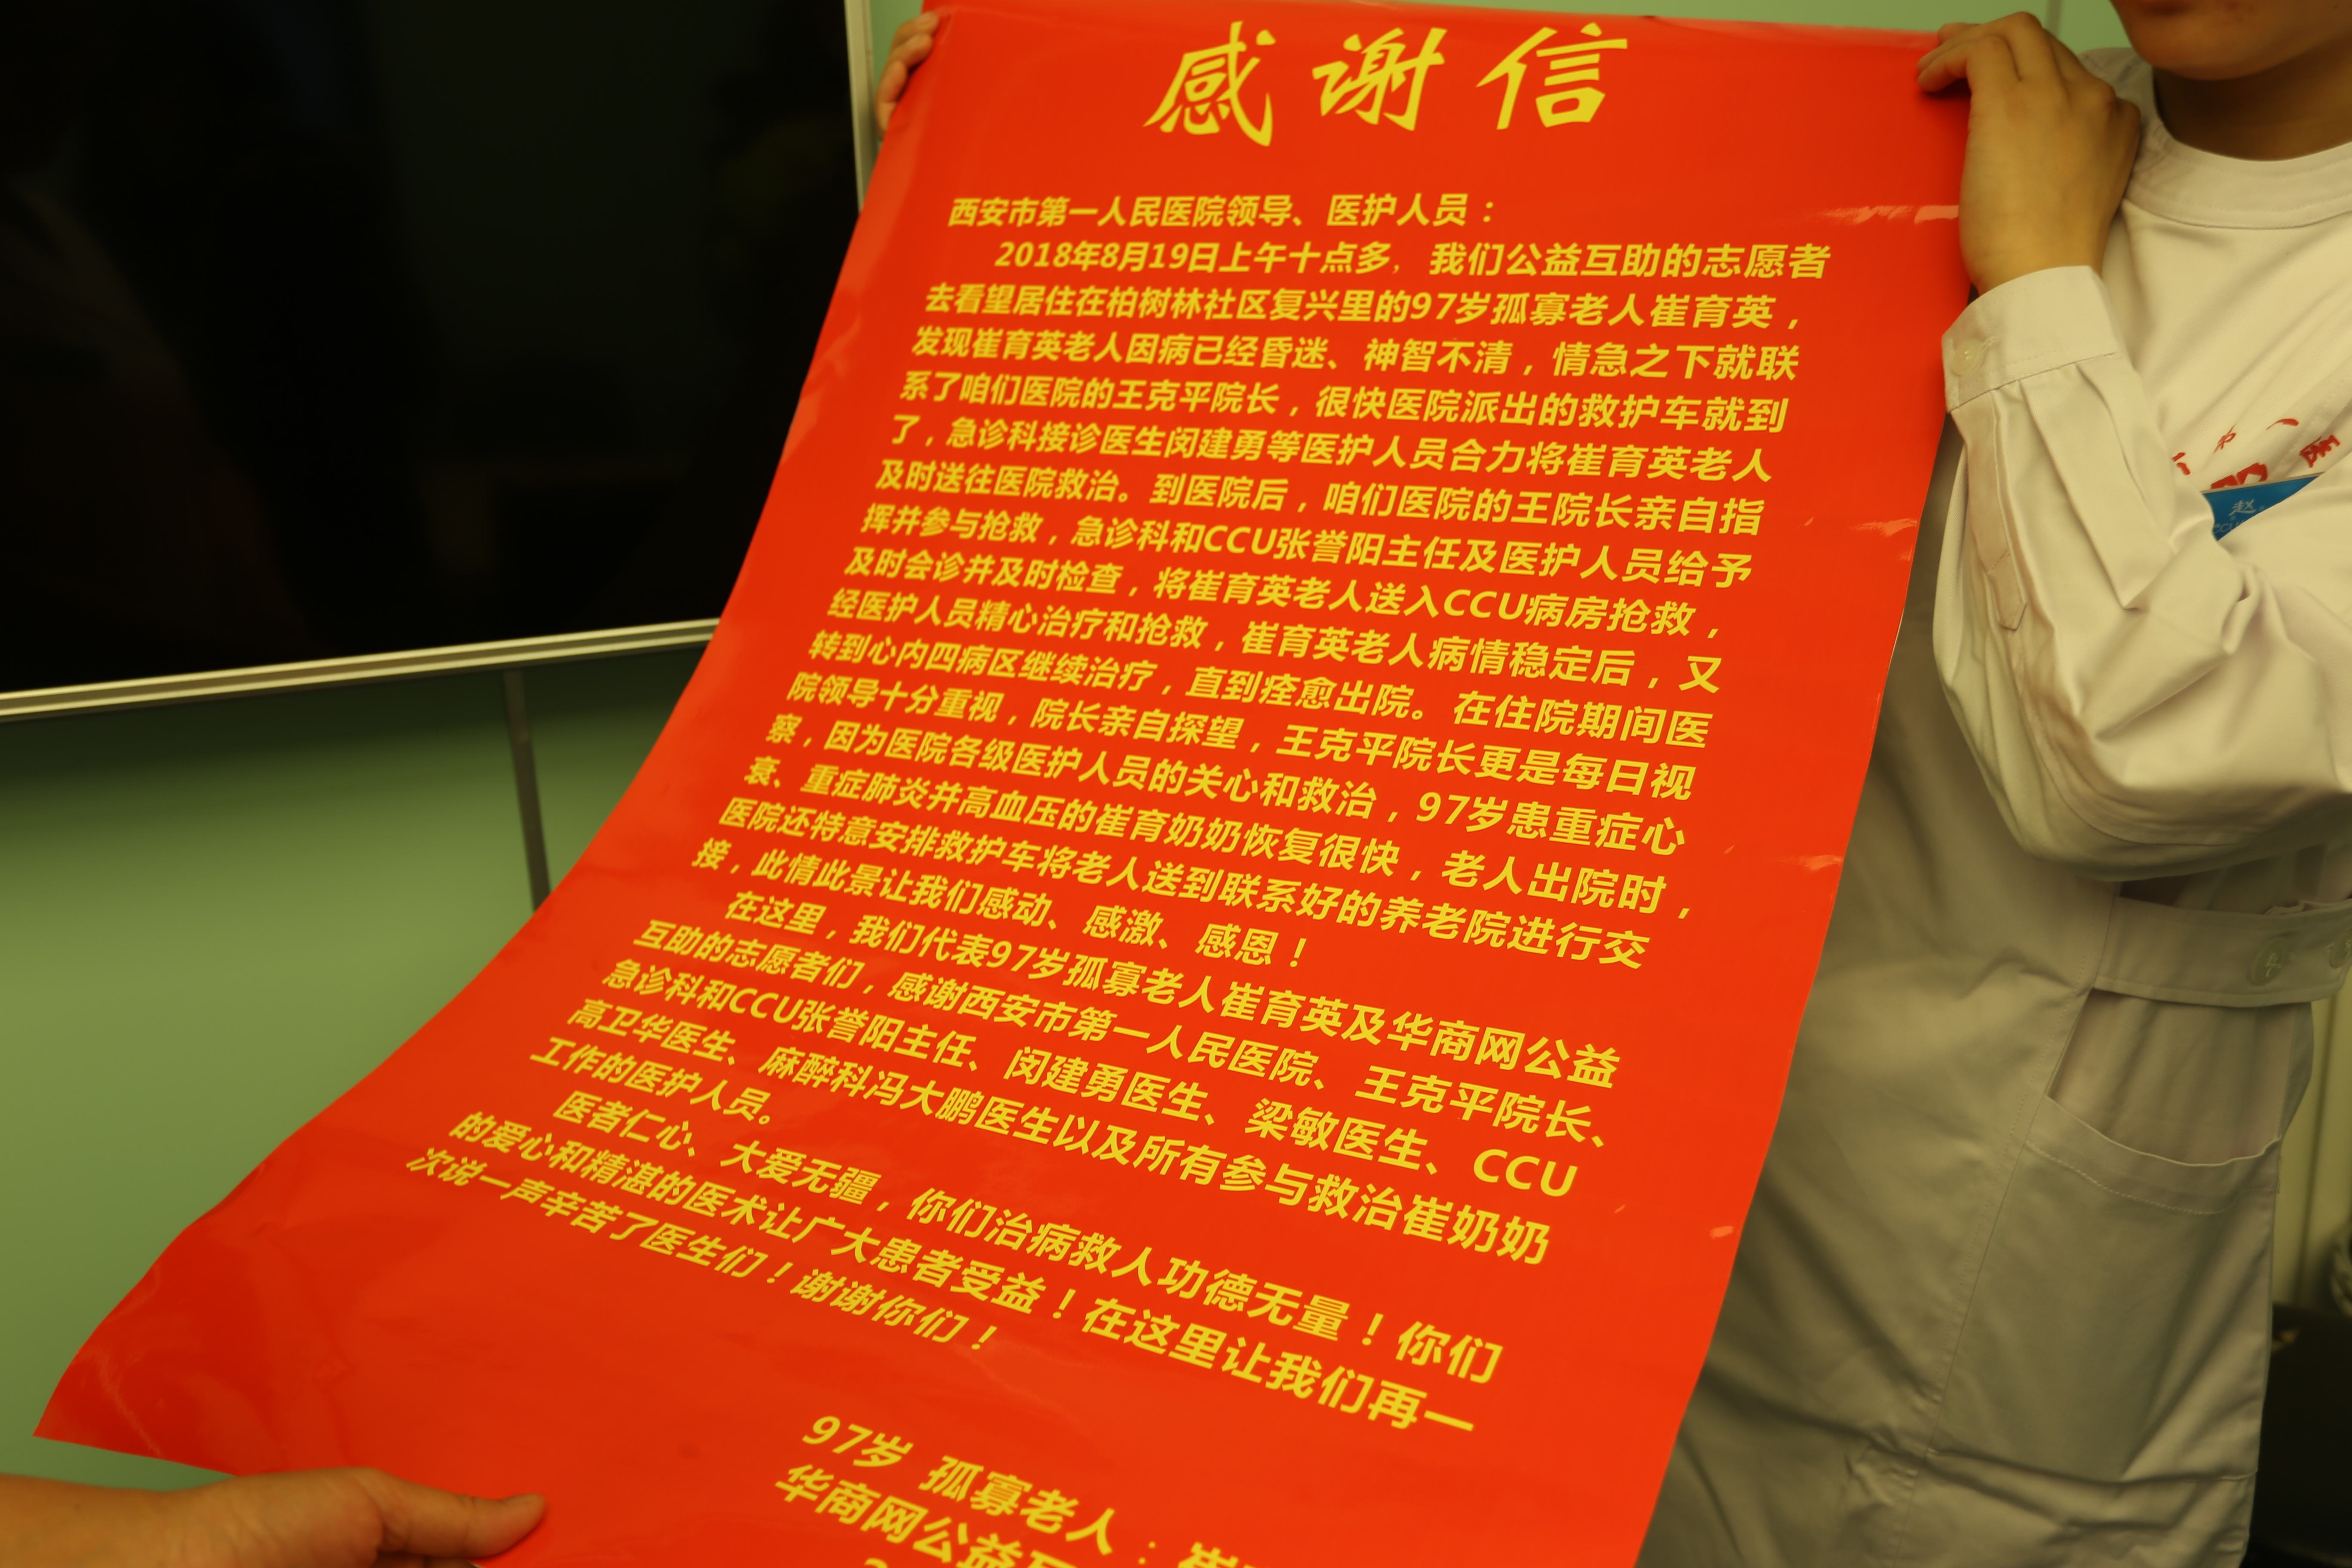 感谢信
西安市第一人民医院领导、医护人员：
2018年8月19日上午十点多，我们公益互助的志愿者
去看望居住在柏树林社区复兴里的97岁孤寡老人崔育英，
发现崔育英老人因病已经昏迷、神智不清，情急之下就联
系了咱们医院的王克平院长，很快医院派出的救护车就到
了，急诊科接诊医生闵建勇等医护人员合力将崔育英老人
及时送往医院救治。到医院后，咱们医院的王院长亲自指
挥并参与抢救，急诊科和CCU张誉阳主任及医护人员给予
及时会诊并及时检查，将崔育英老人送入CCU病房抢救，
经医护人员精心治疗和抢救，崔育英老人病情稳定后，又
转到心内四病区继续治疗，直到痊愈出院。在住院期间医
院领导十分重视，院长亲自探望，王克平院长更是每日视
察，因为医院各级医护人员的关心和救治，97岁患重症心
衰、重症肺炎并高血压的崔育奶奶恢复很快，老人出院时，
医院还特意安排救护车将老人送到联系好的养老院进行交
接，此情此景让我们感动、感激、感恩！
在这里，我们代表97岁孤寡老人崔育英及华商网公益
互助的志愿者们，感谢西安市第一人民医院、王克平院长、
急诊科和CCU张誉阳主任、闵建勇医生、梁敏医生、CCU
高卫华医生、麻醉科冯大鹏医生以及所有参与救治崔奶奶
工作的医护人员。
医者仁心、大爱无疆，你们治病救人功德无量！你们
的爱心和精湛的医术让广大患者受益！在这里让我们再一
次说一声辛苦了医生们！谢谢你们！
97岁 孤寡老人：崔
华商网公益互
赵